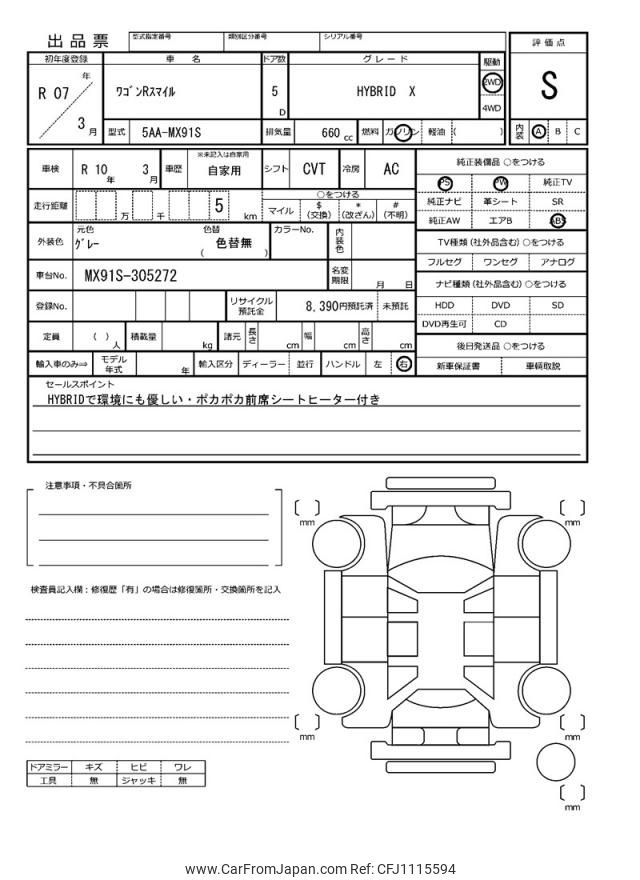 出品票
型式指定番号 類別区分番号 シリアル番号
評価点
S
初年度登録 車名 ドア数 グレード 駆動
R 07 年 3 月
ﾜｺﾞﾝRｽﾏｲﾙ 5 D HYBRID X 2WD
4WD
型式 5AA-MX91S 排気量 660 cc 燃料 ガソリン 軽油 ( )
内装 A B C
車検 R 10 年 3 月 車歴 ※未記入は自家用 自家用 シフト CVT 冷房 AC
走行距離 万 千 5 km
○をつける
マイル $ (交換) * (改ざん) # (不明)
外装色 元色 ｸﾞﾚｰ 色替 色替無 ( ) カラーNo. 内装色
車台No. MX91S-305272 名変期限 月 日
登録No. リサイクル預託金 8,390円預託済 未預託
定員 ( ) 人 積載量 kg 諸元 長さ cm 幅 cm 高さ cm
輸入車のみ⇒ モデル年式 年 輸入区分 ディーラー 並行 ハンドル 左 右
純正装備品 ○をつける
PS PW 純正TV
純正ナビ 革シート SR
純正AW エアB ABS
TV種類 (社外品含む) ○をつける
フルセグ ワンセグ アナログ
ナビ種類 (社外品含む) ○をつける
HDD DVD SD
DVD再生可 CD
後日発送品 ○をつける
新車保証書 車輌取説
セールスポイント
HYBRIDで環境にも優しい・ポカポカ前席シートヒーター付き
注意事項・不具合箇所
検査員記入欄：修復歴「有」の場合は修復箇所・交換箇所を記入
ドアミラー キズ ヒビ ワレ
工具 無 ジャッキ 無
mm
mm
mm
mm
mm
www.CarFromJapan.com Ref: CFJ1115594